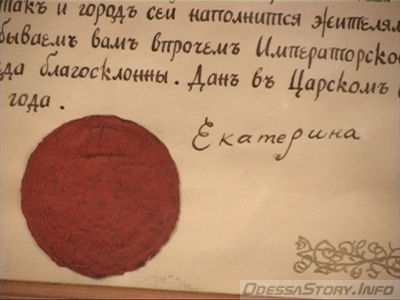 такъ и городъ сей наполнится жителям
бываемъ вамъ впрочемъ Императорско
да благосклонны. Данъ въ Царскомъ
года.
Екатерина
OdessaStory.Info